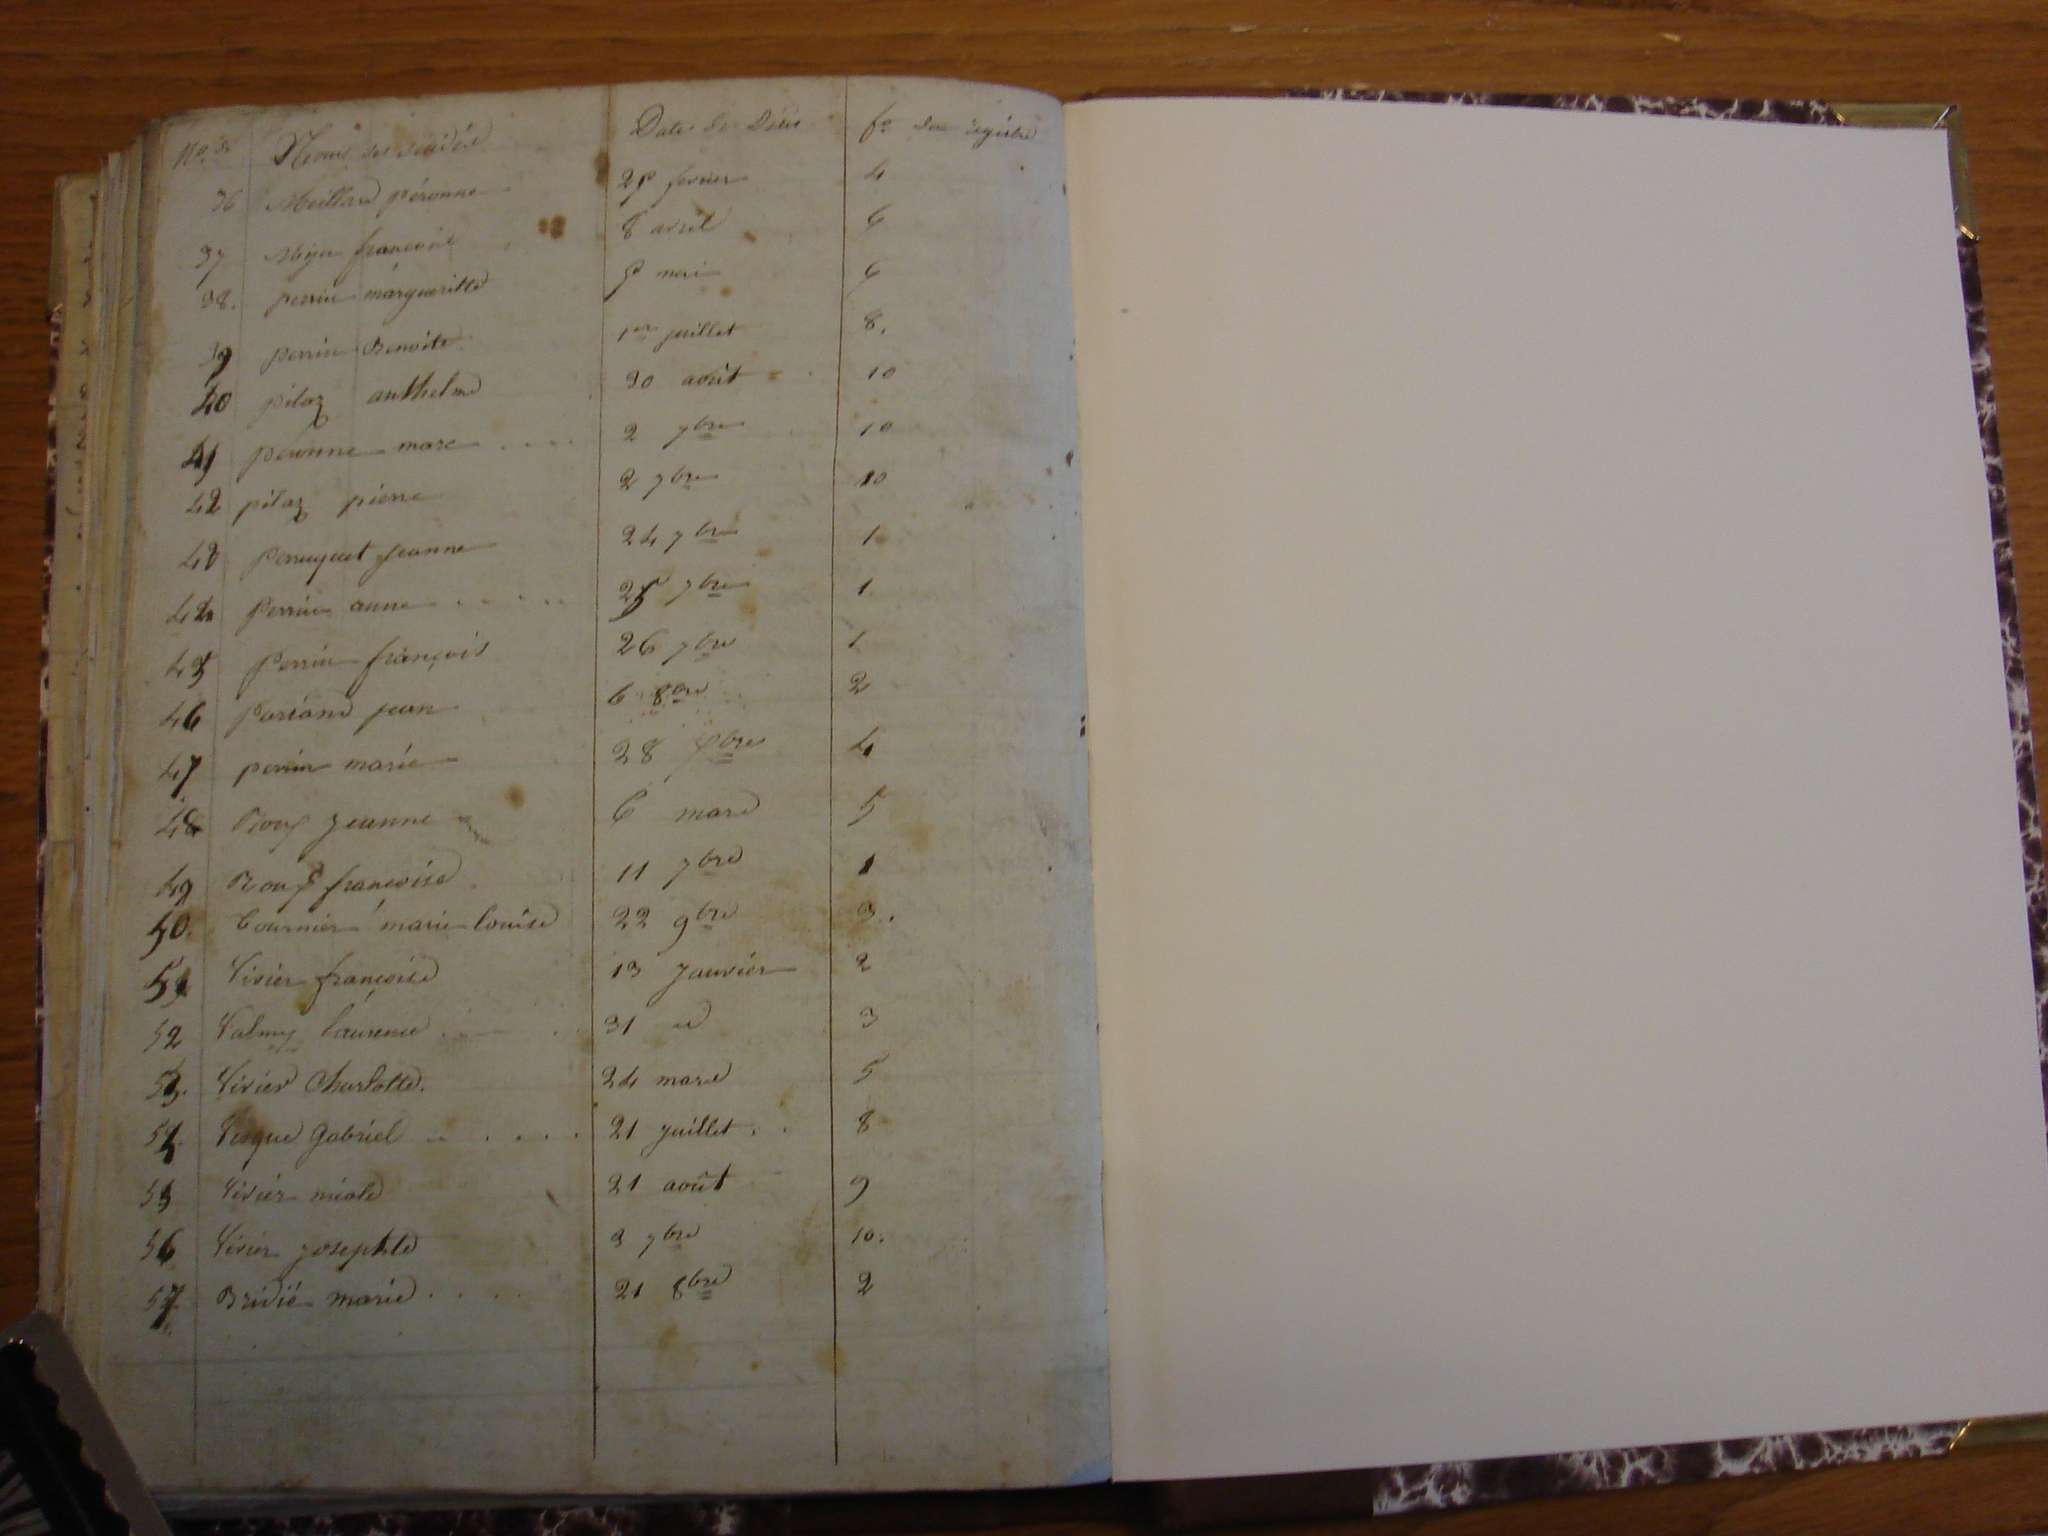 Nos Noms des décédés Dates de Décès fo du registre
36 Meillard péronne février 4
37 françoise 8 avril 6
38. perrin margueritte mai 6
39 perrin Benoite 1er juillet 8.
40 pilaz anthelme 30 août 10
41 péronne marc 2 7bre 10
42 pilaz pierre 2 7bre 10
43 perruquet jeanne 24 7bre 1
44 perrin anne 25 7bre 1
45 perrin françois 26 7bre 1
46 jean 6 8bre 2
47 perrin marie 28 4
48 Roux jeanne 6 mars 5
49 Roux françoise 11 7bre 1
50. tournier marie louise 22 9bre 3.
51 Vivier françoise 13 janvier 2
52 Valmy laurence 31 id 3
53. Vivier Charlotte. 24 mars 5
54. Gabriel 21 juillet 8
55 Vivier 21 août 9
56 Vivier josephte 3 7bre 10.
57 Bridié marie 21 8bre 2